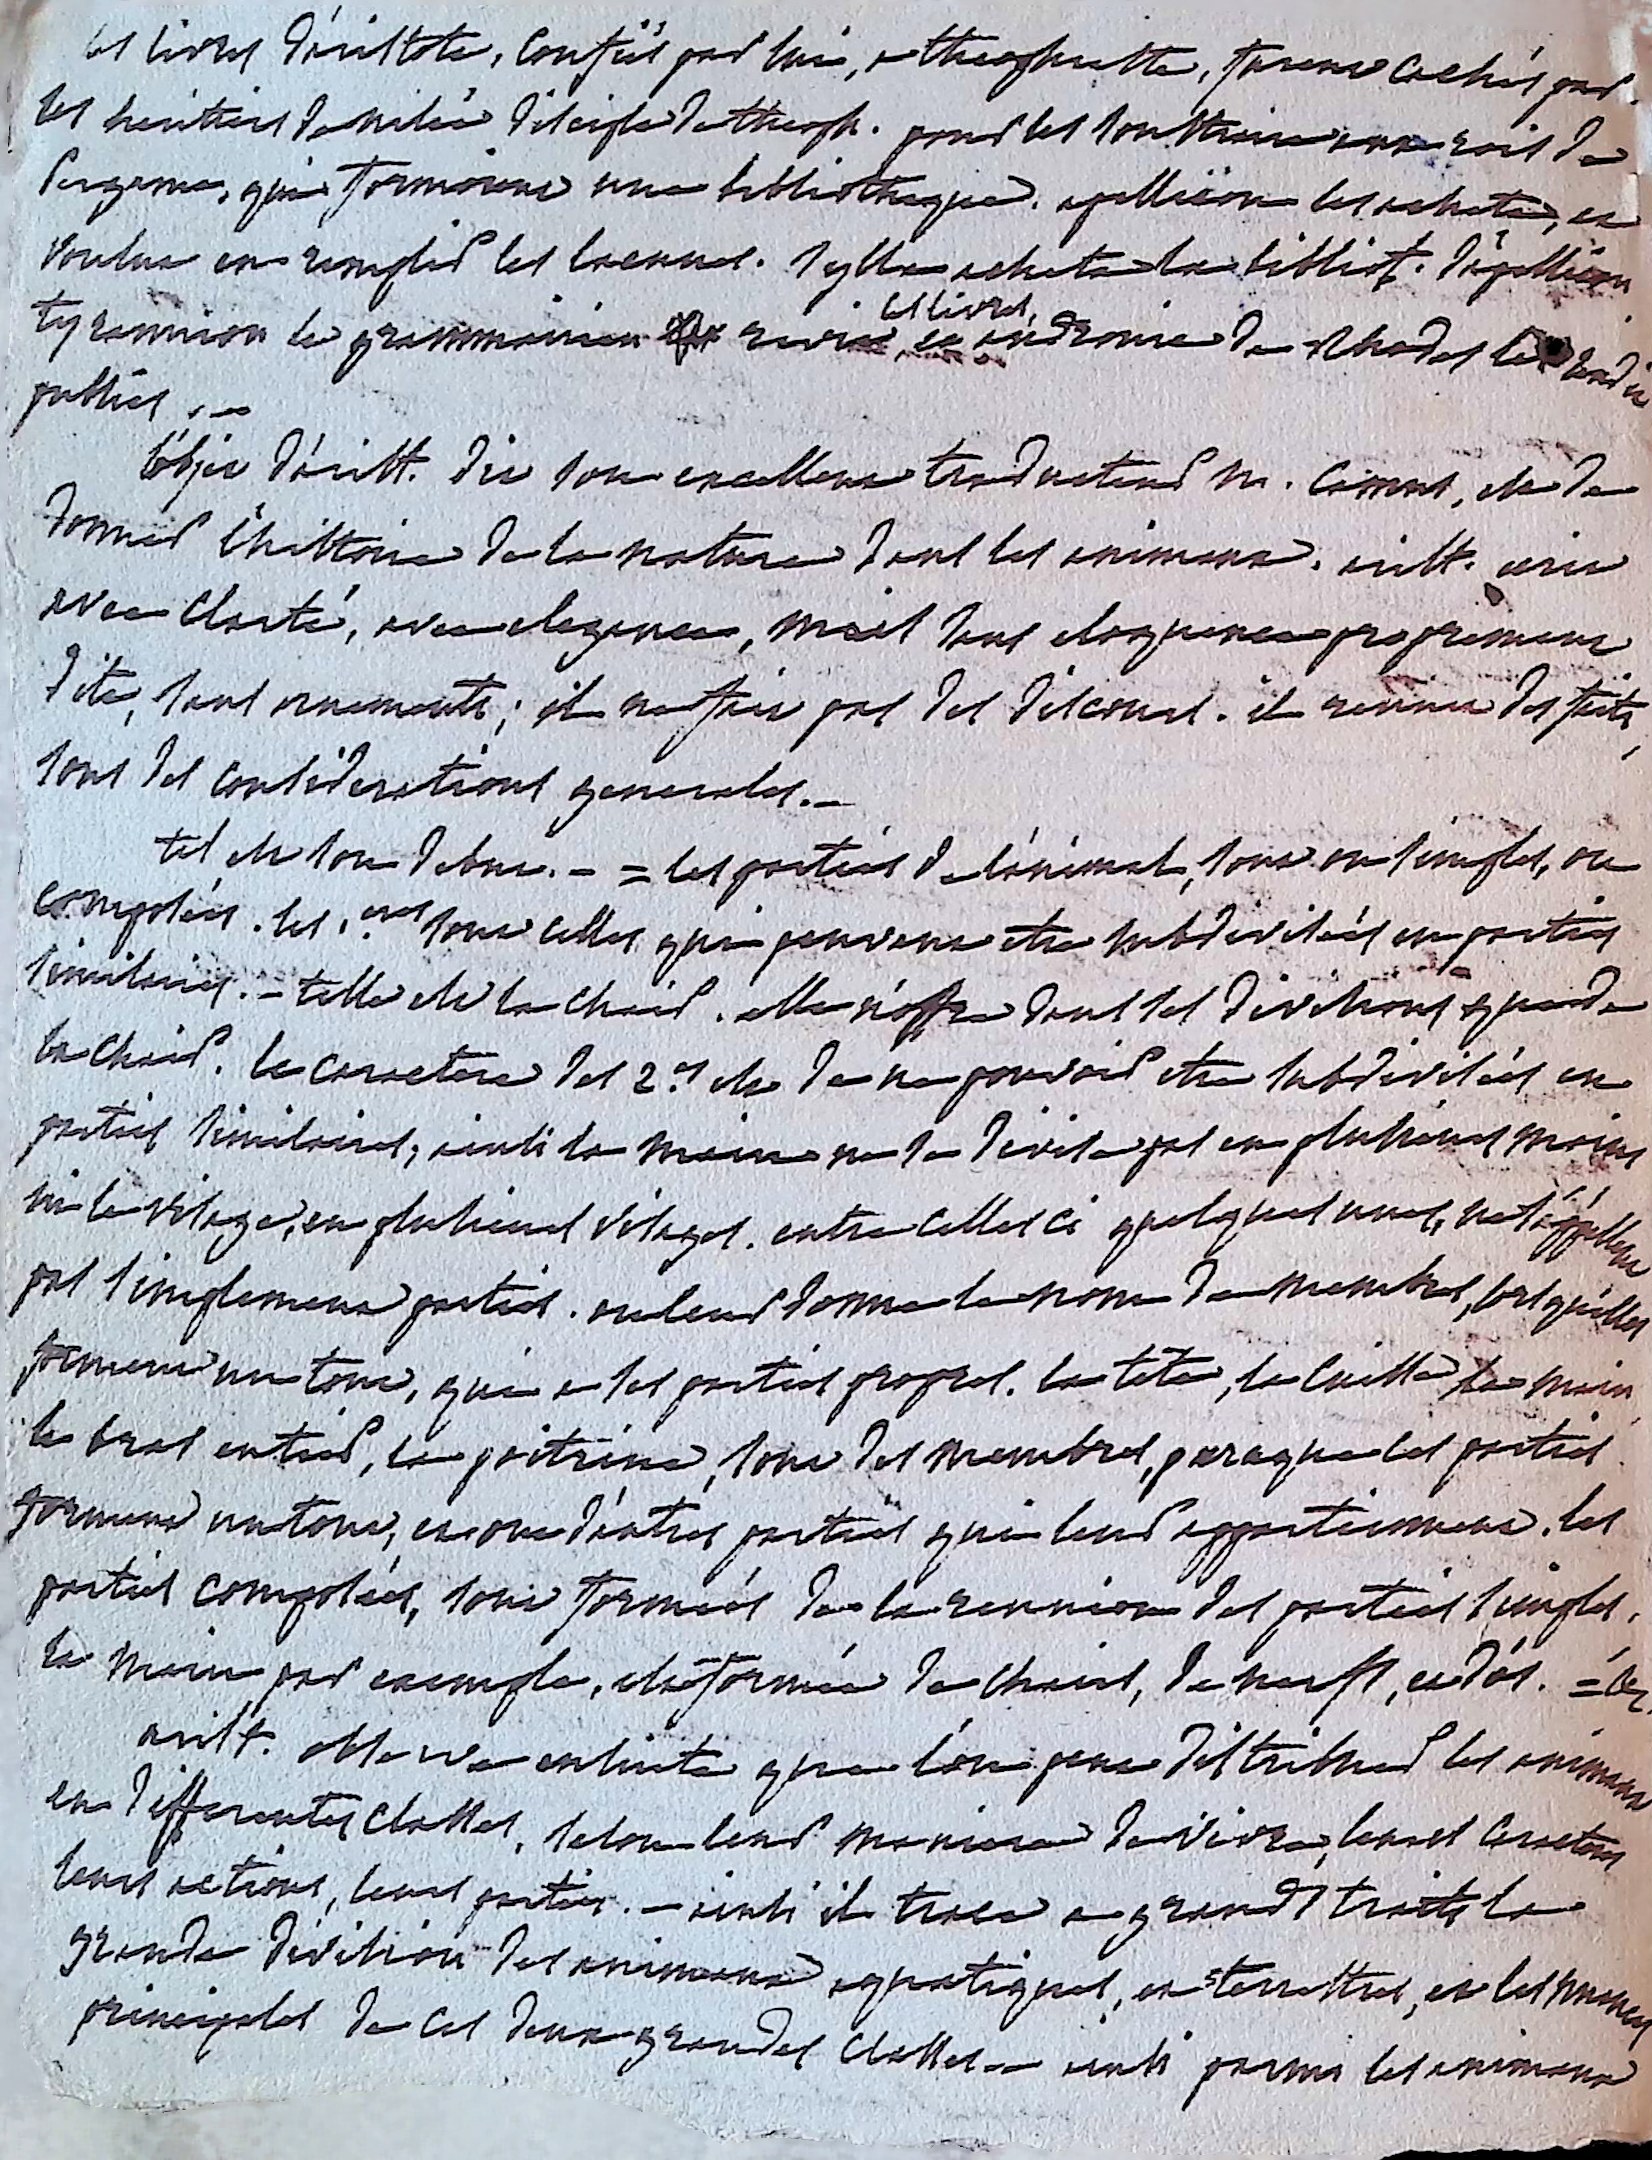 les livres d'aristote, confiés par lui, a theophraste, furent cachés par
les héritiers de nélée disciple de theoph. pour les soustraire aux rois de
Pergame, qui formoient une bibliotheque. apellicon les acheta, et
voulut en remplir les lacunes. Sylla acheta la bibliot. d'apellicon
tyrannion le grammairien revit ces livres, et andronic de Rhodes les rendit
publics. —
l'objet d'arist. dit son excellent traducteur M. Camus, est de
donner l'histoire de la nature dans les animaux. arist. ecrit
avec clarté, avec elegance, mais sans eloquence proprement
dite, sans ornements; il ne fait pas des discours. il reunit des faits,
sous des considerations generales. —
tel est son debut. — = les parties de l'animal, sont ou simples, ou
composées. les 1.eres sont celles qui peuvent etre subdivisées en parties
similaires. — telle est la chair. elle n'offre dans ses divisions que de
la chair. le caractere des 2.es est de ne pouvoir etre subdivisées en
parties similaires; ainsi la main ne se divise pas en plusieurs mains
ni le visage, en plusieurs visages. entre celles ci quelques unes, ne s'appellent
pas simplement parties. on leur donne le nom de membres, lorsqu'elles
forment un tout, qui a ses parties propres. la tête, la cuisse la main,
le bras entier, la poitrine, sont des membres, parceque ces parties
forment un tout, et ont d'autres parties qui leur appartiennent. les
parties composées, sont formées de la reunion des parties simples.
la main par exemple, est formée de chairs, de nerfs, et d'os. = &c.
arist. observe ensuite que l'on peut distribuer les animaux
en differentes classes, selon leur maniere de vivre, leurs caracteres
leurs actions, leurs parties. — ainsi il trace a grands traits la
grande division des animaux aquatiques, et terrestres, et les nuances
principales de ces deux grandes classes — ainsi parmi les animaux